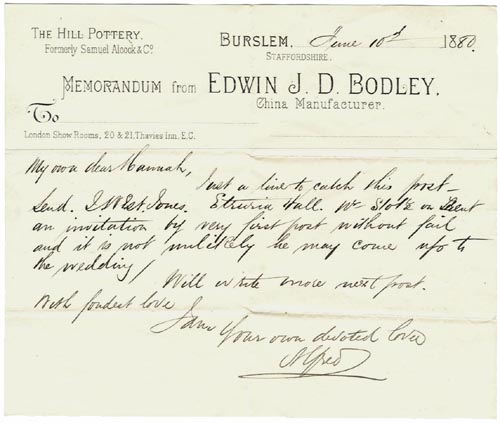 THE HILL POTTERY.
Formerly Samuel Alcock & Co.
BURSLEM, June 10th 1880.
STAFFORDSHIRE.
MEMORANDUM from EDWIN J. D. BODLEY.
China Manufacturer.
To
London Show Rooms, 20 & 21, Thavies Inn, E.C.
My own dear Hannah,
Just a line to catch this post—
Send. J West Jones. Etruria Hall. Nr Stoke on Trent
an invitation by very first post without fail
and it is not unlikely he may come up to
the wedding/
Will write more next post.
With fondest love
I am
Your own devoted lover
Alfred